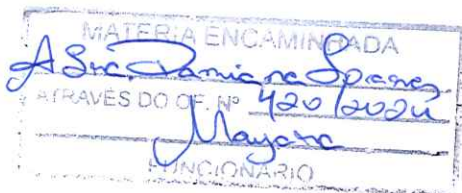 MATERIA ENCAMINHADA
A Sra. Damiana
ATRAVÉS DO OF. Nº 420/2024
Mayara
FUNCIONARIO